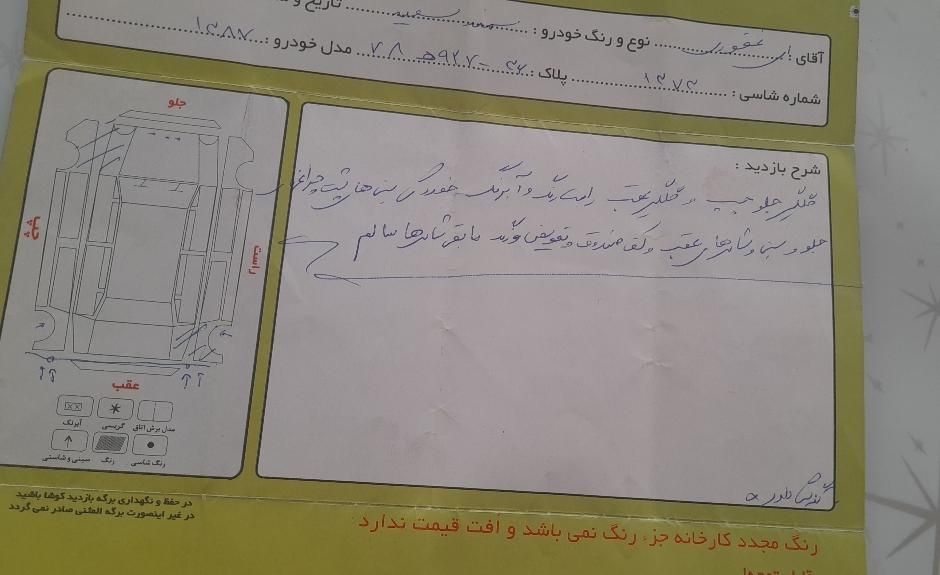 تاریخ و
آقای : نوع و رنگ خودرو : سمند سفید
شماره شاسی : ۱۳۷۳ پلاک : ۳۶ - ۹۲۷ ه ۷۸ مدل خودرو : ۱۳۸۷
شرح بازدید :
گلگیر جلو چپ و گلگیر عقب راست رنگ و آبرنگ خوردگی سینی های پشت چراغهای
جلو و سینی و شاسی های عقب و کف صندوق و تعویض مابقی شاسی ها سالم
جلو
چپ
راست
عقب
مدل برش اتاق
گریسی
آبرنگ
رنگ شاسی
رنگ
سینی و شاسی
در حفظ و نگهداری برگه بازدید کوشا باشید
در غیر اینصورت برگه المثنی صادر نمی گردد
رنگ مجدد کارخانه جزء رنگ نمی باشد و افت قیمت ندارد